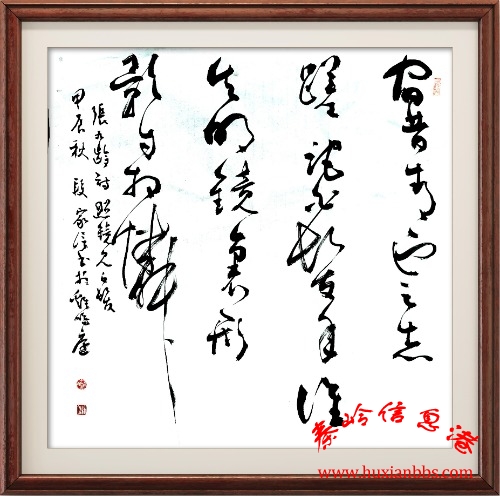 宿昔青雲志
蹉跎白髮年誰
知明鏡裏形
影自相憐
張九齡詩照鏡見白髮
甲辰秋段家書於
秦岭信息港
www.huxianbbs.com